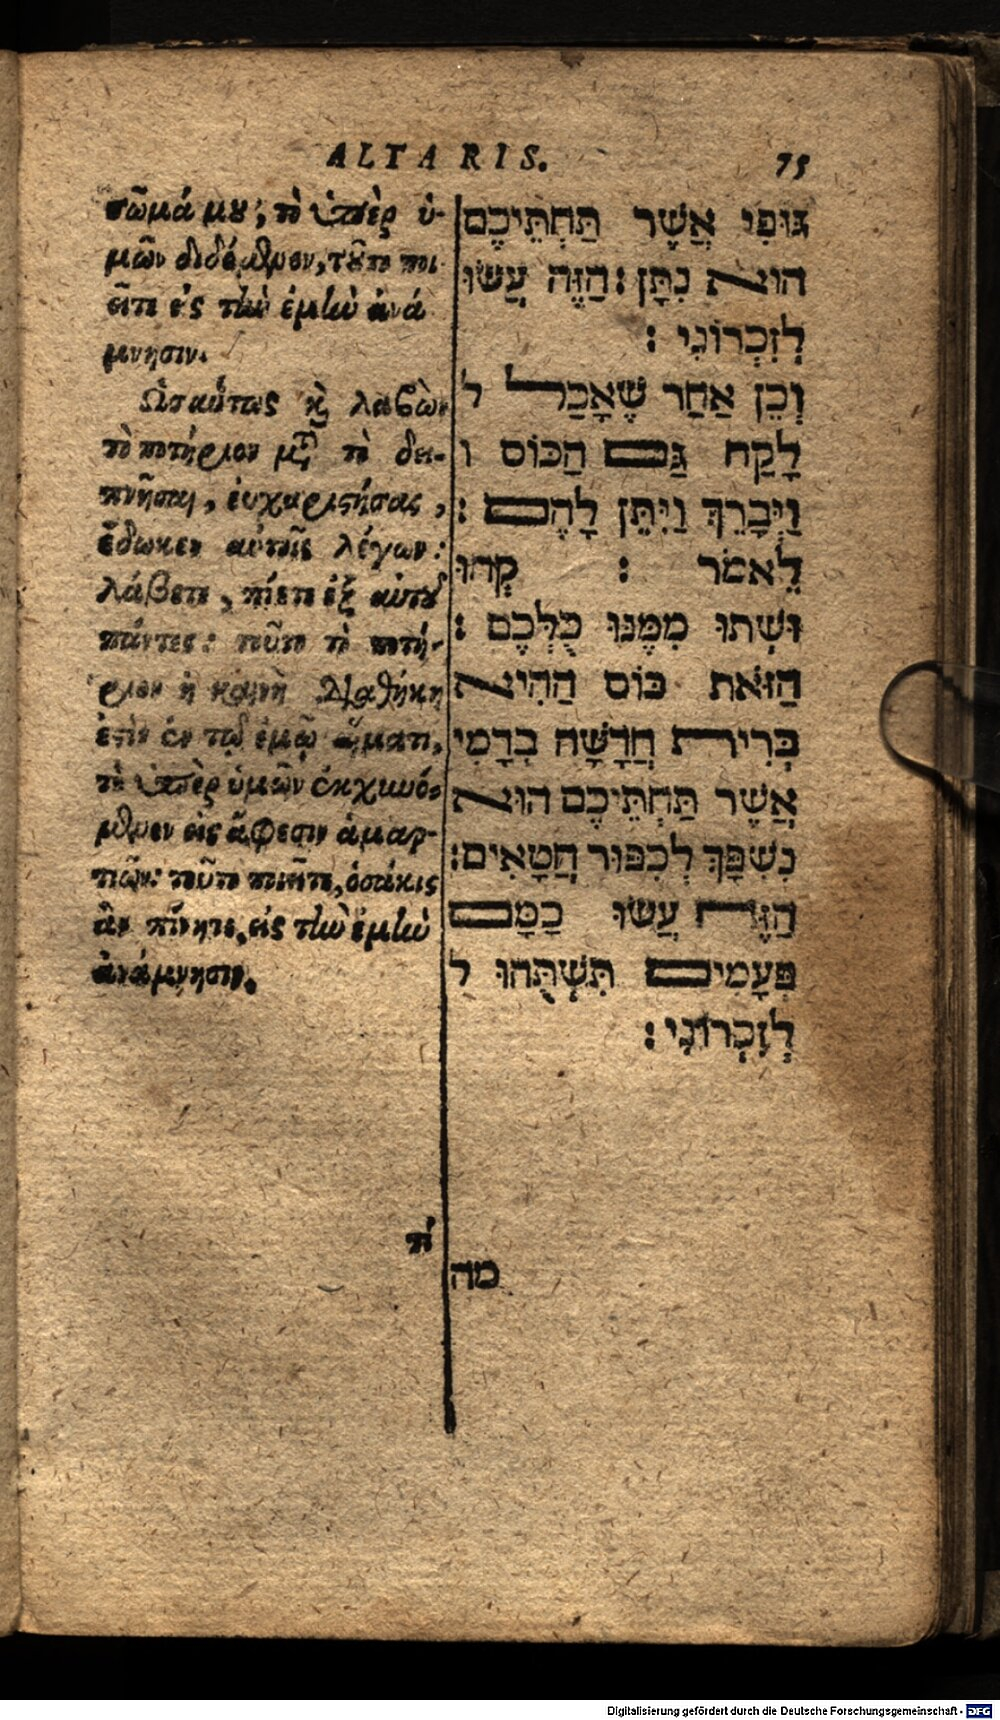 ALTARIS. 75
σῶμά μου, τὸ ὑπὲρ ὑ-
μῶν διδόμενον, τοῦτο ποι
εῖτε εἰς τὴν ἐμὴν ἀνά
μνησιν.
Ὡσαύτως καὶ λαβὼν
τὸ ποτήριον μετὰ τὸ δει-
πνῆσαι, εὐχαριστήσας,
ἔδωκεν αὐτοῖς λέγων:
λάβετε, πίετε ἐξ αὐτοῦ
πάντες: τοῦτο τὸ ποτή-
ριον ἡ καινὴ Διαθήκη
ἐστὶν ἐν τῷ ἐμῷ αἵματι,
τὸ ὑπὲρ ὑμῶν ἐκχυνό-
μενον εἰς ἄφεσιν ἁμαρ-
τιῶν: τοῦτο ποιεῖτε, ὁσάκις
ἂν πίνητε, εἰς τὴν ἐμὴν
ἀνάμνησιν.
גּוּפִי אֲשֶׁר תַּחְתֵּיכֶם
הוּא נִתָּן: הַזֶּה עֲשׂוּ
לְזִכְרוֹנִי:
וְכֵן אַחַר שֶׁאָכַל ל
לָקַח גַּם הַכּוֹס ו
וַיְּבָרֵךְ וַיִּתֵּן לָהֶם:
לֵאמֹר : קְחוּ
וּשְׁתוּ מִמֶּנּוּ כֻּלְּכֶם:
הַזֹּאת כּוֹס הַהִיא
בְּרִית חֲדָשָׁה בְדָמִי
אֲשֶׁר תַּחְתֵּיכֶם הוּא
נִשְׁפָּךְ לְכִפּוּר חֲטָאִים:
הַזֶּה עֲשׂוּ כַּמָּם
פְּעָמִים תִּשְׁתֻּהוּ ל
לְזִכְרוֹנִי:
מה
Digitalisierung gefördert durch die Deutsche Forschungsgemeinschaft - DFG